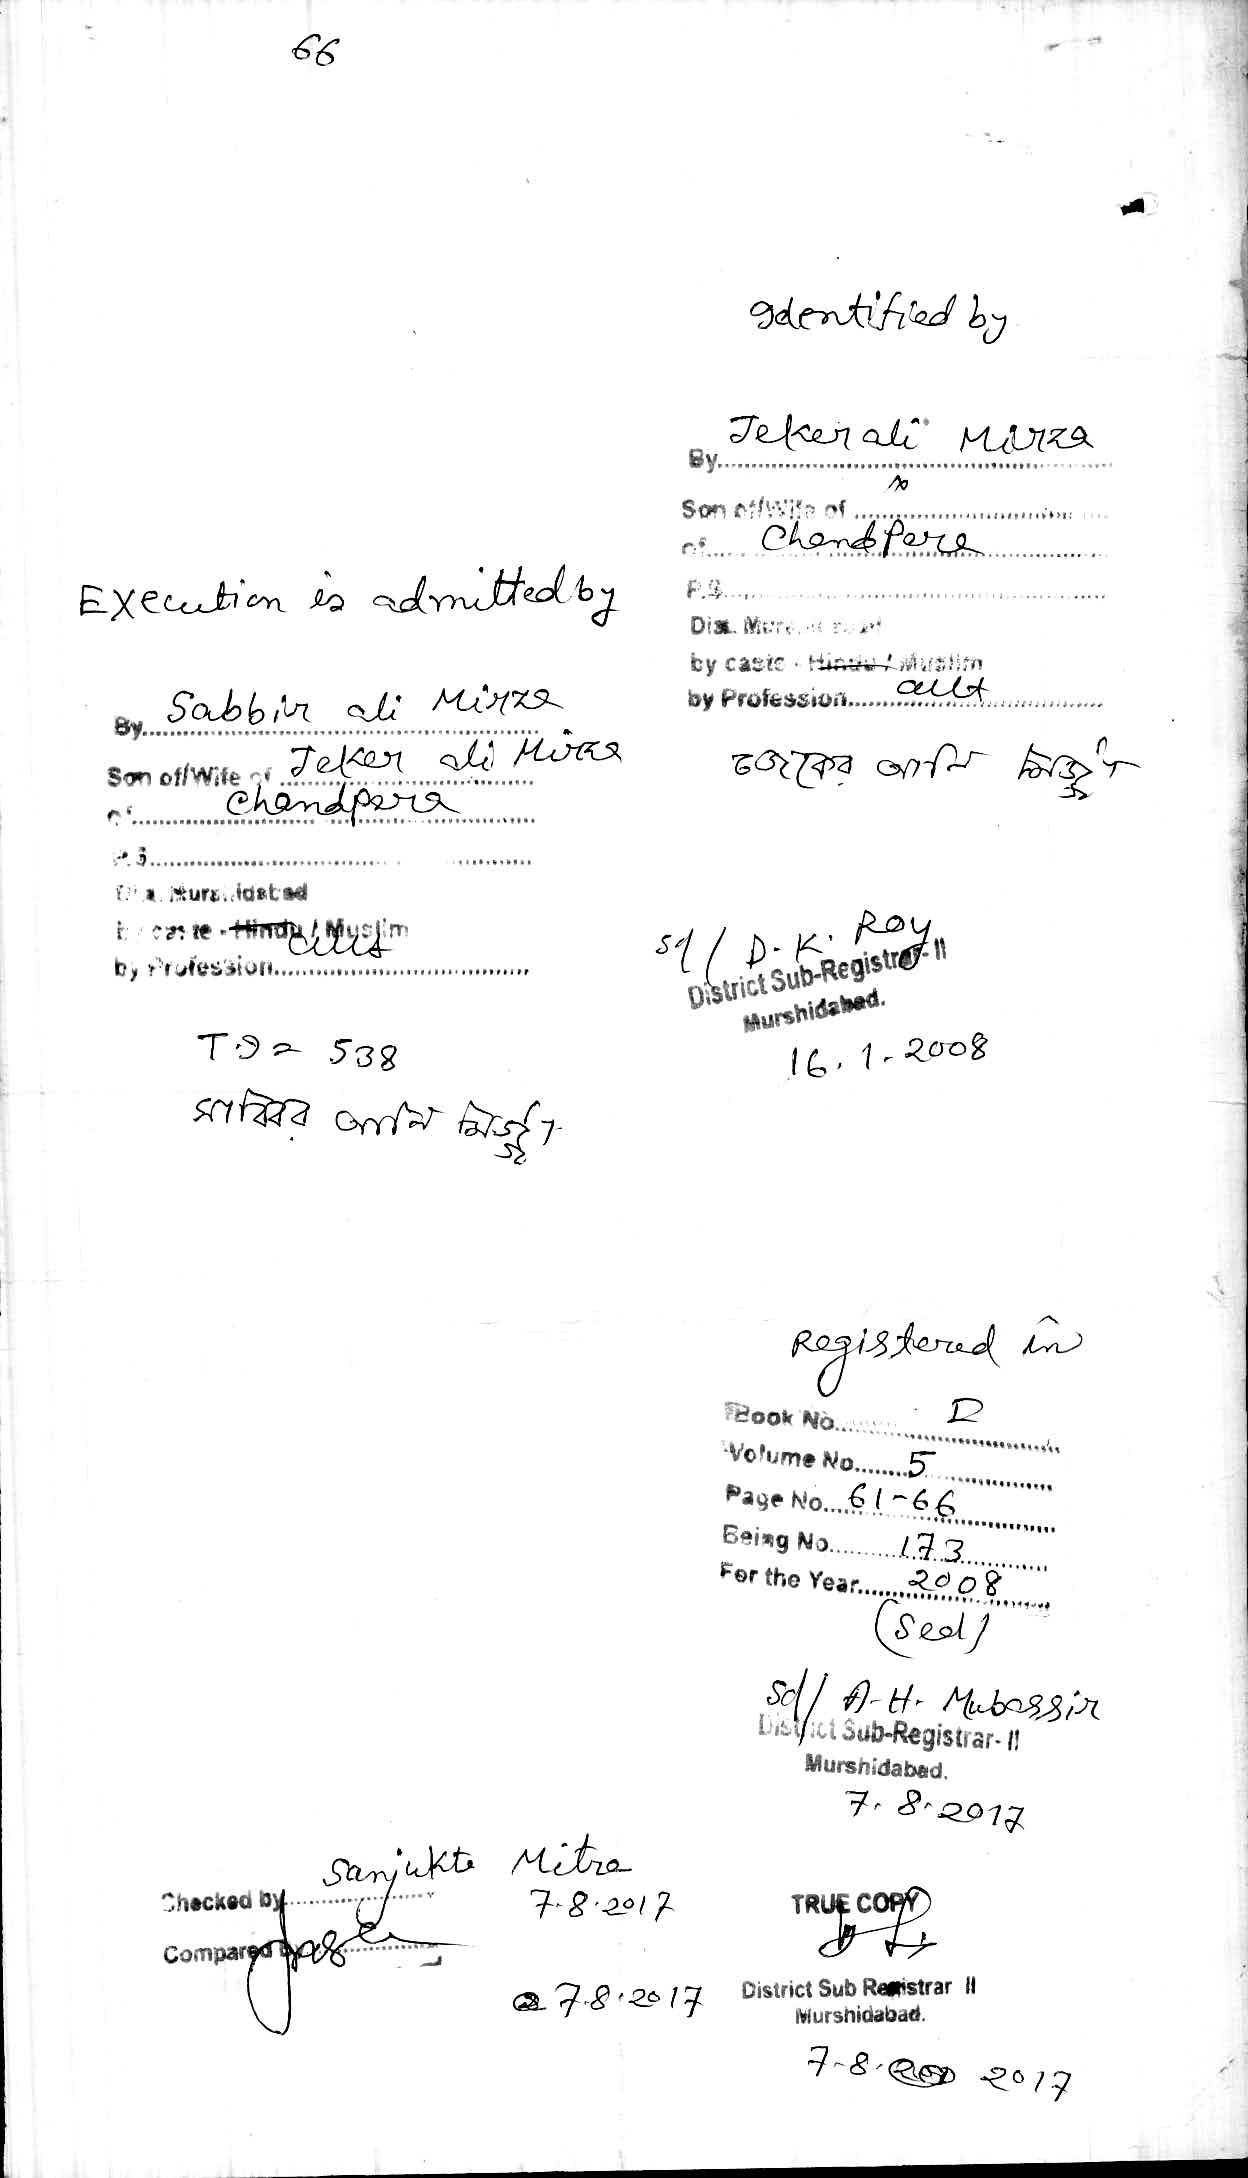 66
Identified by
By Jekerali Mirza
Son of/Wife of
of Chandpara
P.S.
Dist. Murshidabad
by caste - Hindu / Muslim
by Profession cult
জেকের আলি মির্জ্জা
Execution is admitted by
By Sabbir ali Mirza
Son of/Wife of Jeker ali Mirza
of Chandpara
P.S.
Dist. Murshidabad
by caste - Hindu / Muslim
by Profession cult
538
সাব্বির আলি মির্জ্জা
sd/ D. K. Roy
District Sub-Registrar-II
Murshidabad.
16.1.2008
Registered in
Book No.
Volume No. 5
Page No. 61-66
Being No. 173
For the Year 2008
(Seal)
Sd/ A-H. Mubassir
District Sub-Registrar-II
Murshidabad.
7.8.2017
Checked by Sanjukta Mitra
7.8.2017
Compared by
7.8.2017
TRUE COPY
District Sub Registrar II
Murshidabad.
7-8. 2017